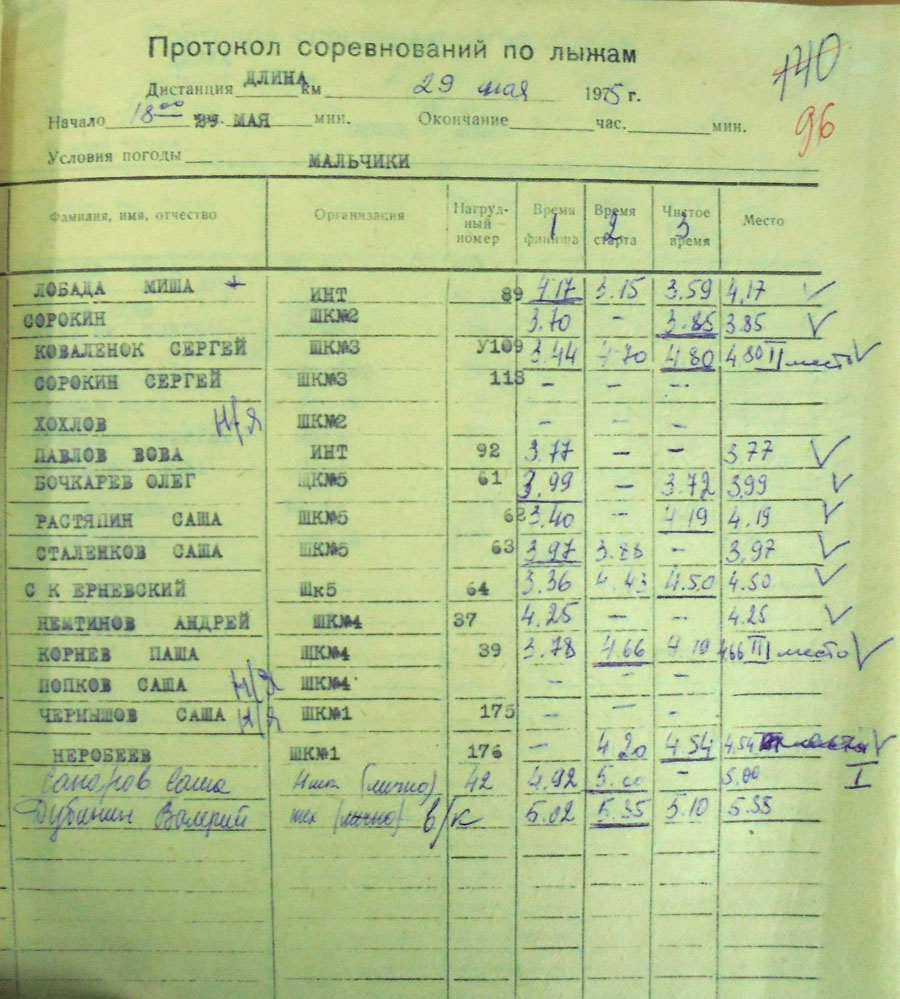 Протокол соревнований по лыжам
Дистанция ДЛИНА км 29 мая 1975 г.
140
Начало 18 00 час. 29 МАЯ мин. Окончание час. мин.
96
Условия погоды МАЛЬЧИКИ
Фамилия, имя, отчество Организация Нагрудный номер Время финиша 1 Время старта 2 Чистое время 3 Место
ЛОБАДА МИША + ИНТ 89 4.17 3.15 3.59 4.17 V
СОРОКИН ШК№2 3.70 - 3.85 3.85 V
КОВАЛЕНОК СЕРГЕЙ ШК№3 У109 3.44 4.70 4.80 4.80 II место V
СОРОКИН СЕРГЕЙ ШК№3 113 - - -
ХОХЛОВ н/я ШК№2 - - -
ПАВЛОВ ВОВА ИНТ 92 3.77 - - 3.77 V
БОЧКАРЕВ ОЛЕГ ЩК№5 61 3.99 - 3.72 3.99 V
РАСТЯПИН САША ШК№5 62 3.40 - 4.19 4.19 V
СТАЛЕНКОВ САША ШК№5 63 3.97 3.88 - 3.97 V
С К ЕРНЕВСКИЙ Шк5 64 3.36 4.43 4.50 4.50 V
НЕМТИНОВ АНДРЕЙ ШК№4 37 4.25 - - 4.25 V
КОРНЕВ ПАША ШК№4 39 3.78 4.66 4.19 4.66 III место V
ПОПКОВ САША н/я ШК№4 - - -
ЧЕРНЫШОВ САША н/я ШК№1 175 - - -
НЕРОБЕЕВ ШК№1 176 - 4.20 4.54 4.54 V
Саша (лично) 42 4.92 5.00 - 5.00 I
Валерий (лично) в/к 5.02 5.35 5.10 5.35